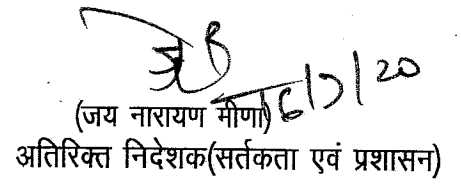 16/7/20
(जय नारायण मीणा)
अतिरिक्त निदेशक(सर्तकता एवं प्रशासन)